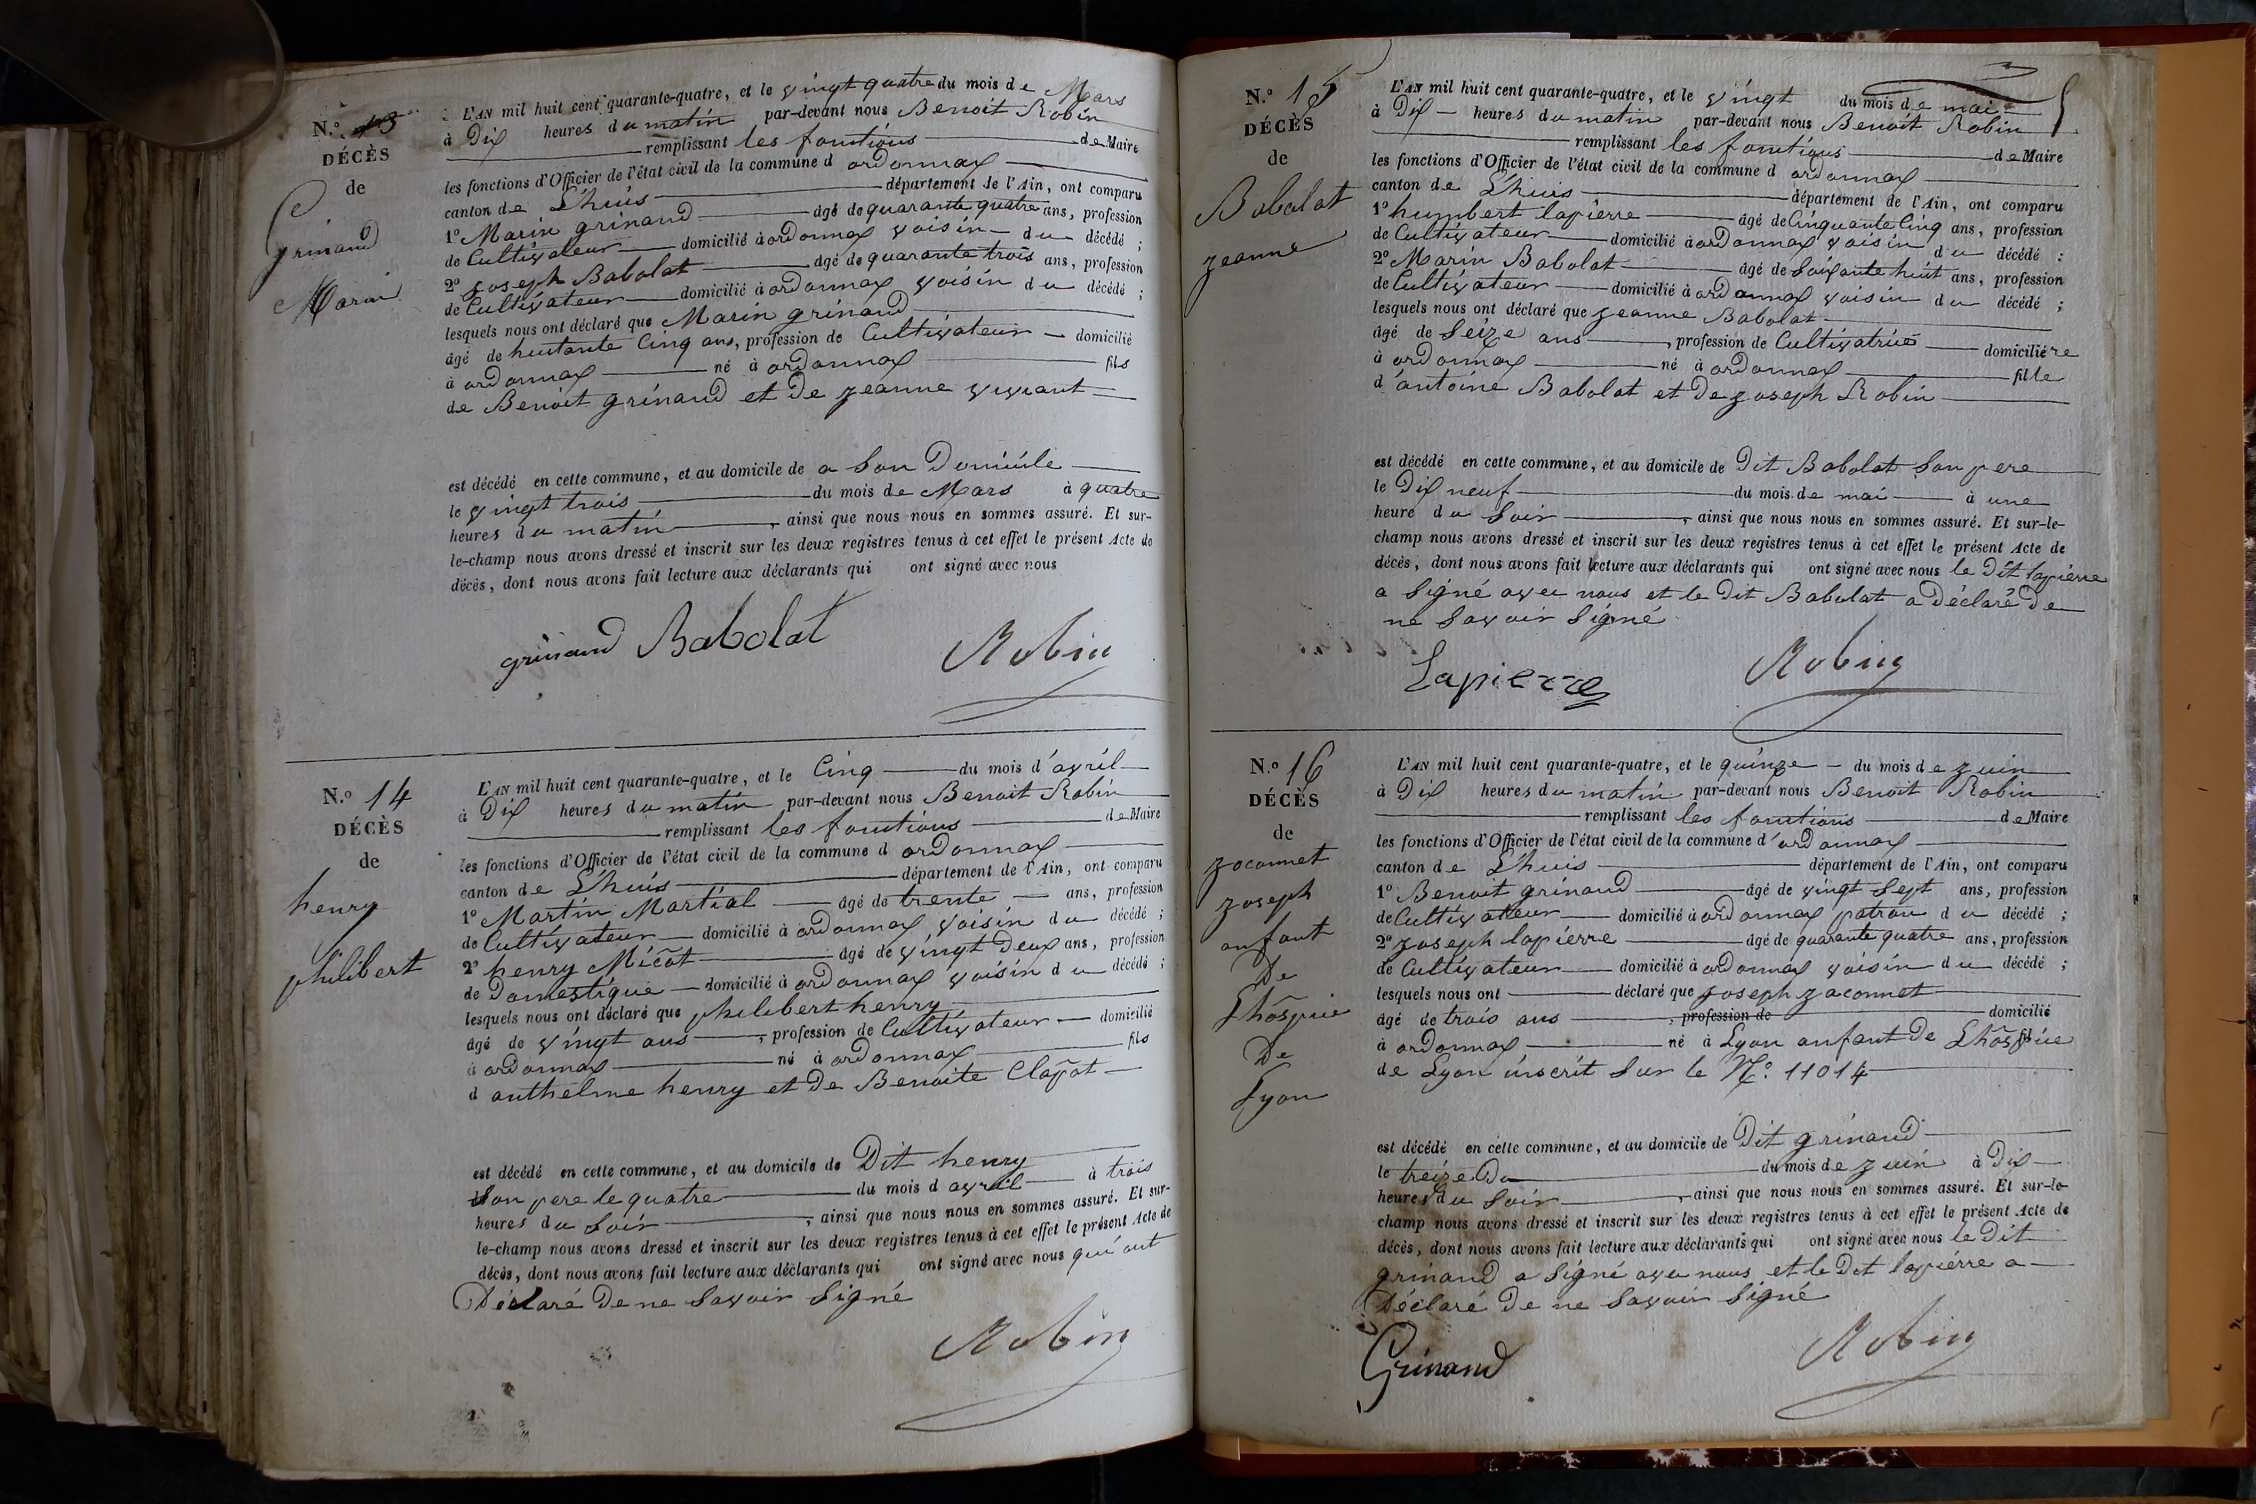 N.º 13
DÉCÈS
de
grinand
Marin
L'AN mil huit cent quarante-quatre, et le vingt quatre du mois de Mars
à Dix heures du matin par-devant nous Benoit Robin
remplissant les fonctions de Maire
les fonctions d'Officier de l'état civil de la commune d ordonnax
canton de L'huis département de l'Ain, ont comparu
1º Marin grinand âgé de quarante quatre ans, profession
de Cultivateur domicilié à ordonnax voisin du décédé ;
2º Joseph Babolat âgé de quarante trois ans, profession
de Cultivateur domicilié à ordonnax voisin du décédé ;
lesquels nous ont déclaré que Marin grinand
âgé de huitante Cinq ans, profession de Cultivateur domicilié
à ordonnax né à ordonnax fils
de Benoit grinand et De jeanne viviant
est décédé en cette commune, et au domicile de a Son Domicile
le vingt trois du mois de Mars à quatre
heures du matin, ainsi que nous nous en sommes assuré. Et sur-
le-champ nous avons dressé et inscrit sur les deux registres tenus à cet effet le présent Acte de
décès, dont nous avons fait lecture aux déclarants qui ont signé avec nous
grinand Babolat Robin
N.º 14
DÉCÈS
de
henry
philibert
L'AN mil huit cent quarante-quatre, et le Cinq du mois d'avril
à Dix heures du matin par-devant nous Benoit Robin
remplissant les fonctions de Maire
les fonctions d'Officier de l'état civil de la commune d ordonnax
canton de L'huis département de l'Ain, ont comparu
1º Martin Martial âgé de trente ans, profession
de Cultivateur domicilié à ordonnax voisin du décédé ;
2º henry Micot âgé de vingt Deux ans, profession
de Domestique domicilié à ordonnax voisin du décédé ;
lesquels nous ont déclaré que philibert henry
âgé de vingt ans, profession de Cultivateur domicilié
à ordonnax né à ordonnax fils
d anthelme henry et De Benoite Clapot
est décédé en cette commune, et au domicile de Dit henry
Son pere le quatre du mois d avril à trois
heures du Soir, ainsi que nous nous en sommes assuré. Et sur-
le-champ nous avons dressé et inscrit sur les deux registres tenus à cet effet le présent Acte de
décès, dont nous avons fait lecture aux déclarants qui ont signé avec nous qui ont
Déclaré De ne Savoir Signé
Robin
N.º 15
DÉCÈS
de
Babolat
jeanne
L'AN mil huit cent quarante-quatre, et le vingt du mois de mai
à Dix heures du matin par-devant nous Benoit Robin
remplissant les fonctions de Maire
les fonctions d'Officier de l'état civil de la commune d ordonnax
canton de L'huis département de l'Ain, ont comparu
1º humbert lapierre âgé de Cinquante Cinq ans, profession
de Cultivateur domicilié à ordonnax voisin du décédé ;
2º Marin Babolat âgé de Soixante huit ans, profession
de Cultivateur domicilié à ordonnax voisin du décédé ;
lesquels nous ont déclaré que jeanne Babolat
âgé de Seize ans, profession de Cultivatrice domiciliére
à ordonnax né à ordonnax fille
d'antoine Babolat et De joseph Robin
est décédé en cette commune, et au domicile de Dit Babolat Son pere
le Dix neuf du mois de mai à une
heure du Soir, ainsi que nous nous en sommes assuré. Et sur-le-
champ nous avons dressé et inscrit sur les deux registres tenus à cet effet le présent Acte de
décès, dont nous avons fait lecture aux déclarants qui ont signé avec nous le Dit lapierre
a Signé avec nous et le Dit Babolat a Déclaré De
ne Savoir Signé
Lapierre Robin
N.º 16
DÉCÈS
de
jaconnet
joseph
anfant
De
Lhôspice
De
Lyon
L'AN mil huit cent quarante-quatre, et le quinze du mois de juin
à Dix heures du matin par-devant nous Benoit Robin
remplissant les fonctions de Maire
les fonctions d'Officier de l'état civil de la commune d'ordonnax
canton de L'huis département de l'Ain, ont comparu
1º Benoit grinand âgé de vingt Sept ans, profession
de Cultivateur domicilié à ordonnax patron du décédé ;
2º joseph lapierre âgé de quarante quatre ans, profession
de Cultivateur domicilié à ordonnax voisin du décédé ;
lesquels nous ont déclaré que joseph jaconnet
âgé de trois ans, profession de domicilié
à ordonnax né à Lyon anfant De Lhôspice fils
de Lyon inscrit Sur le Nº 11014
est décédé en cette commune, et au domicile de Dit grinand
le treize Du du mois de juin à Dix
heures du Soir, ainsi que nous nous en sommes assuré. Et sur-le-
champ nous avons dressé et inscrit sur les deux registres tenus à cet effet le présent Acte de
décès, dont nous avons fait lecture aux déclarants qui ont signé avec nous le Dit
grinand a Signé avec nous et le Dit lapierre a
Déclaré De ne Savoir Signé
Grinand Robin